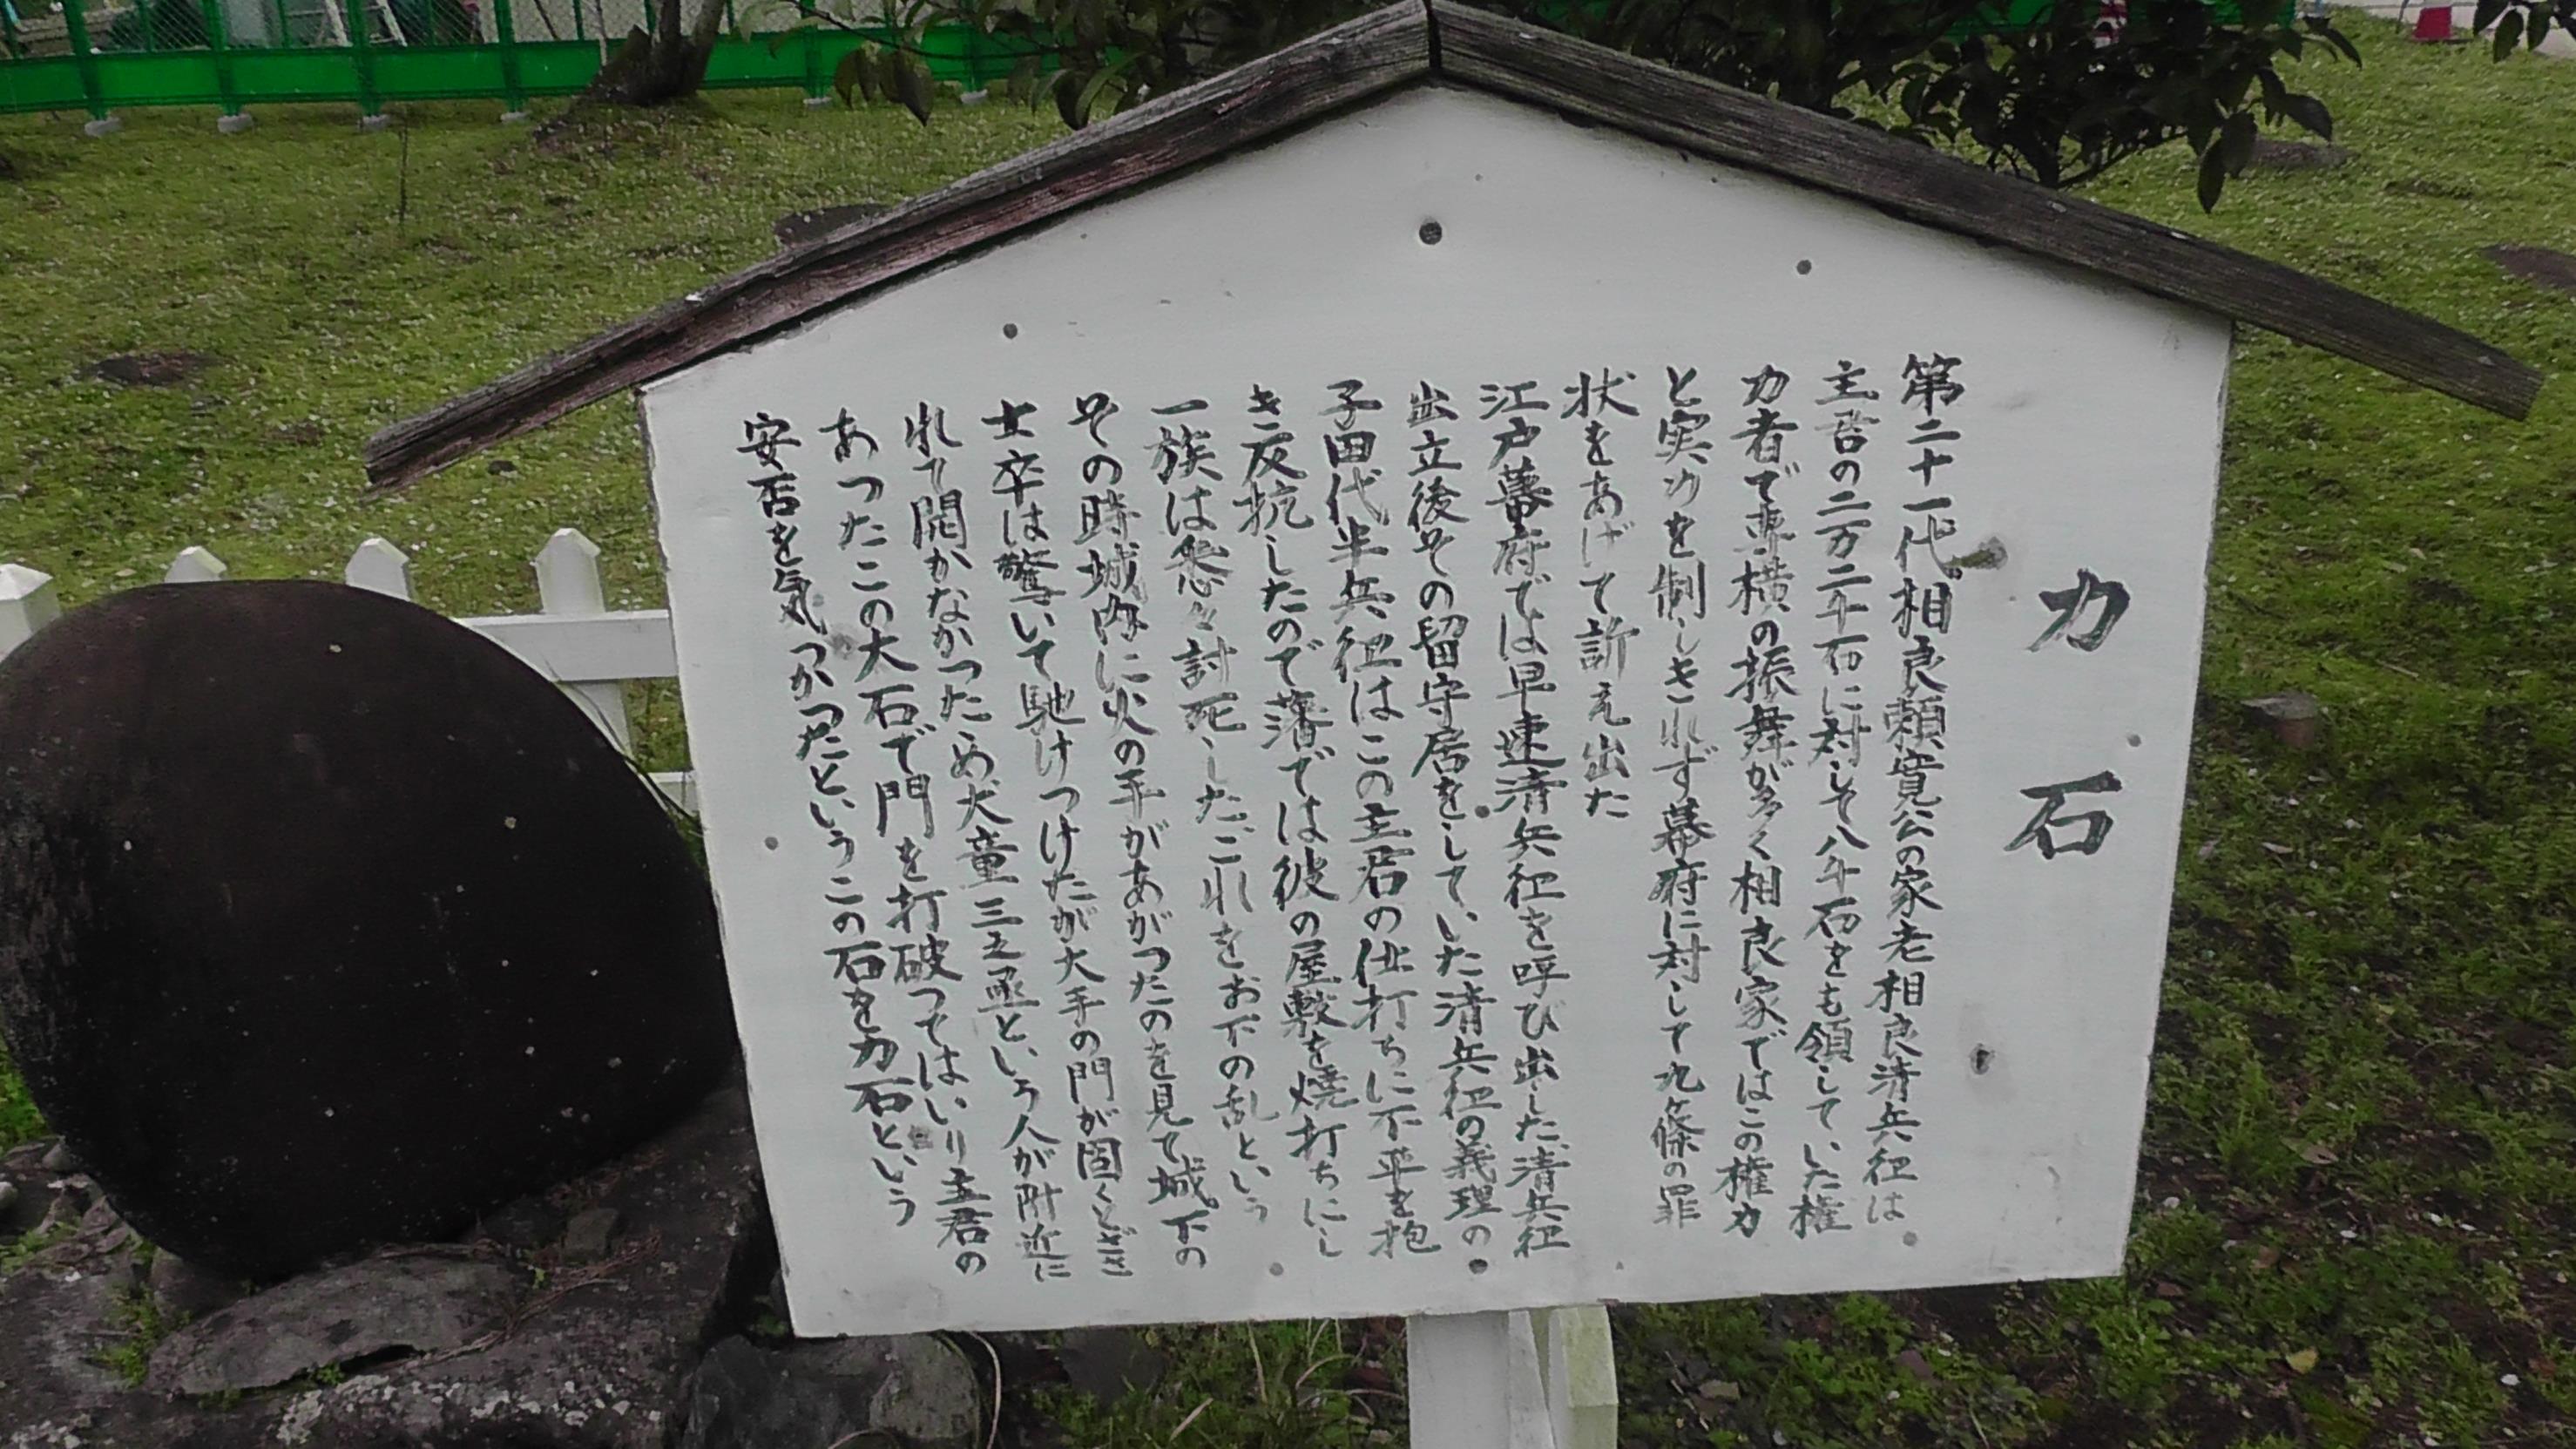 力石
第二十一代相良頼寛公の家老相良清兵衛は
主君の二万二千石に対して八千石をも領していた権
力者で専横の振舞が多く相良家ではこの権力
と実力を制しきれず幕府に対して九ヶ條の罪
状をあげて訴え出た
江戸幕府では早速清兵衛を呼び出した、清兵衛
出立後その留守居をしていた清兵衛の義理の
子田代半兵衛はこの主君の仕打ちに不平を抱
き反抗したので藩では彼の屋敷を焼打ちにし
一族は悉々討死した、これをお下の乱という
その時城内に火の手があがつたのを見て城下の
士卒は驚いて馳けつけたが大手の門が固くとざさ
れて開かなかつたため犬童三之丞という人が附近に
あつたこの大石で門を打破つてはいり主君の
安否を気づかつたというこの石を力石という